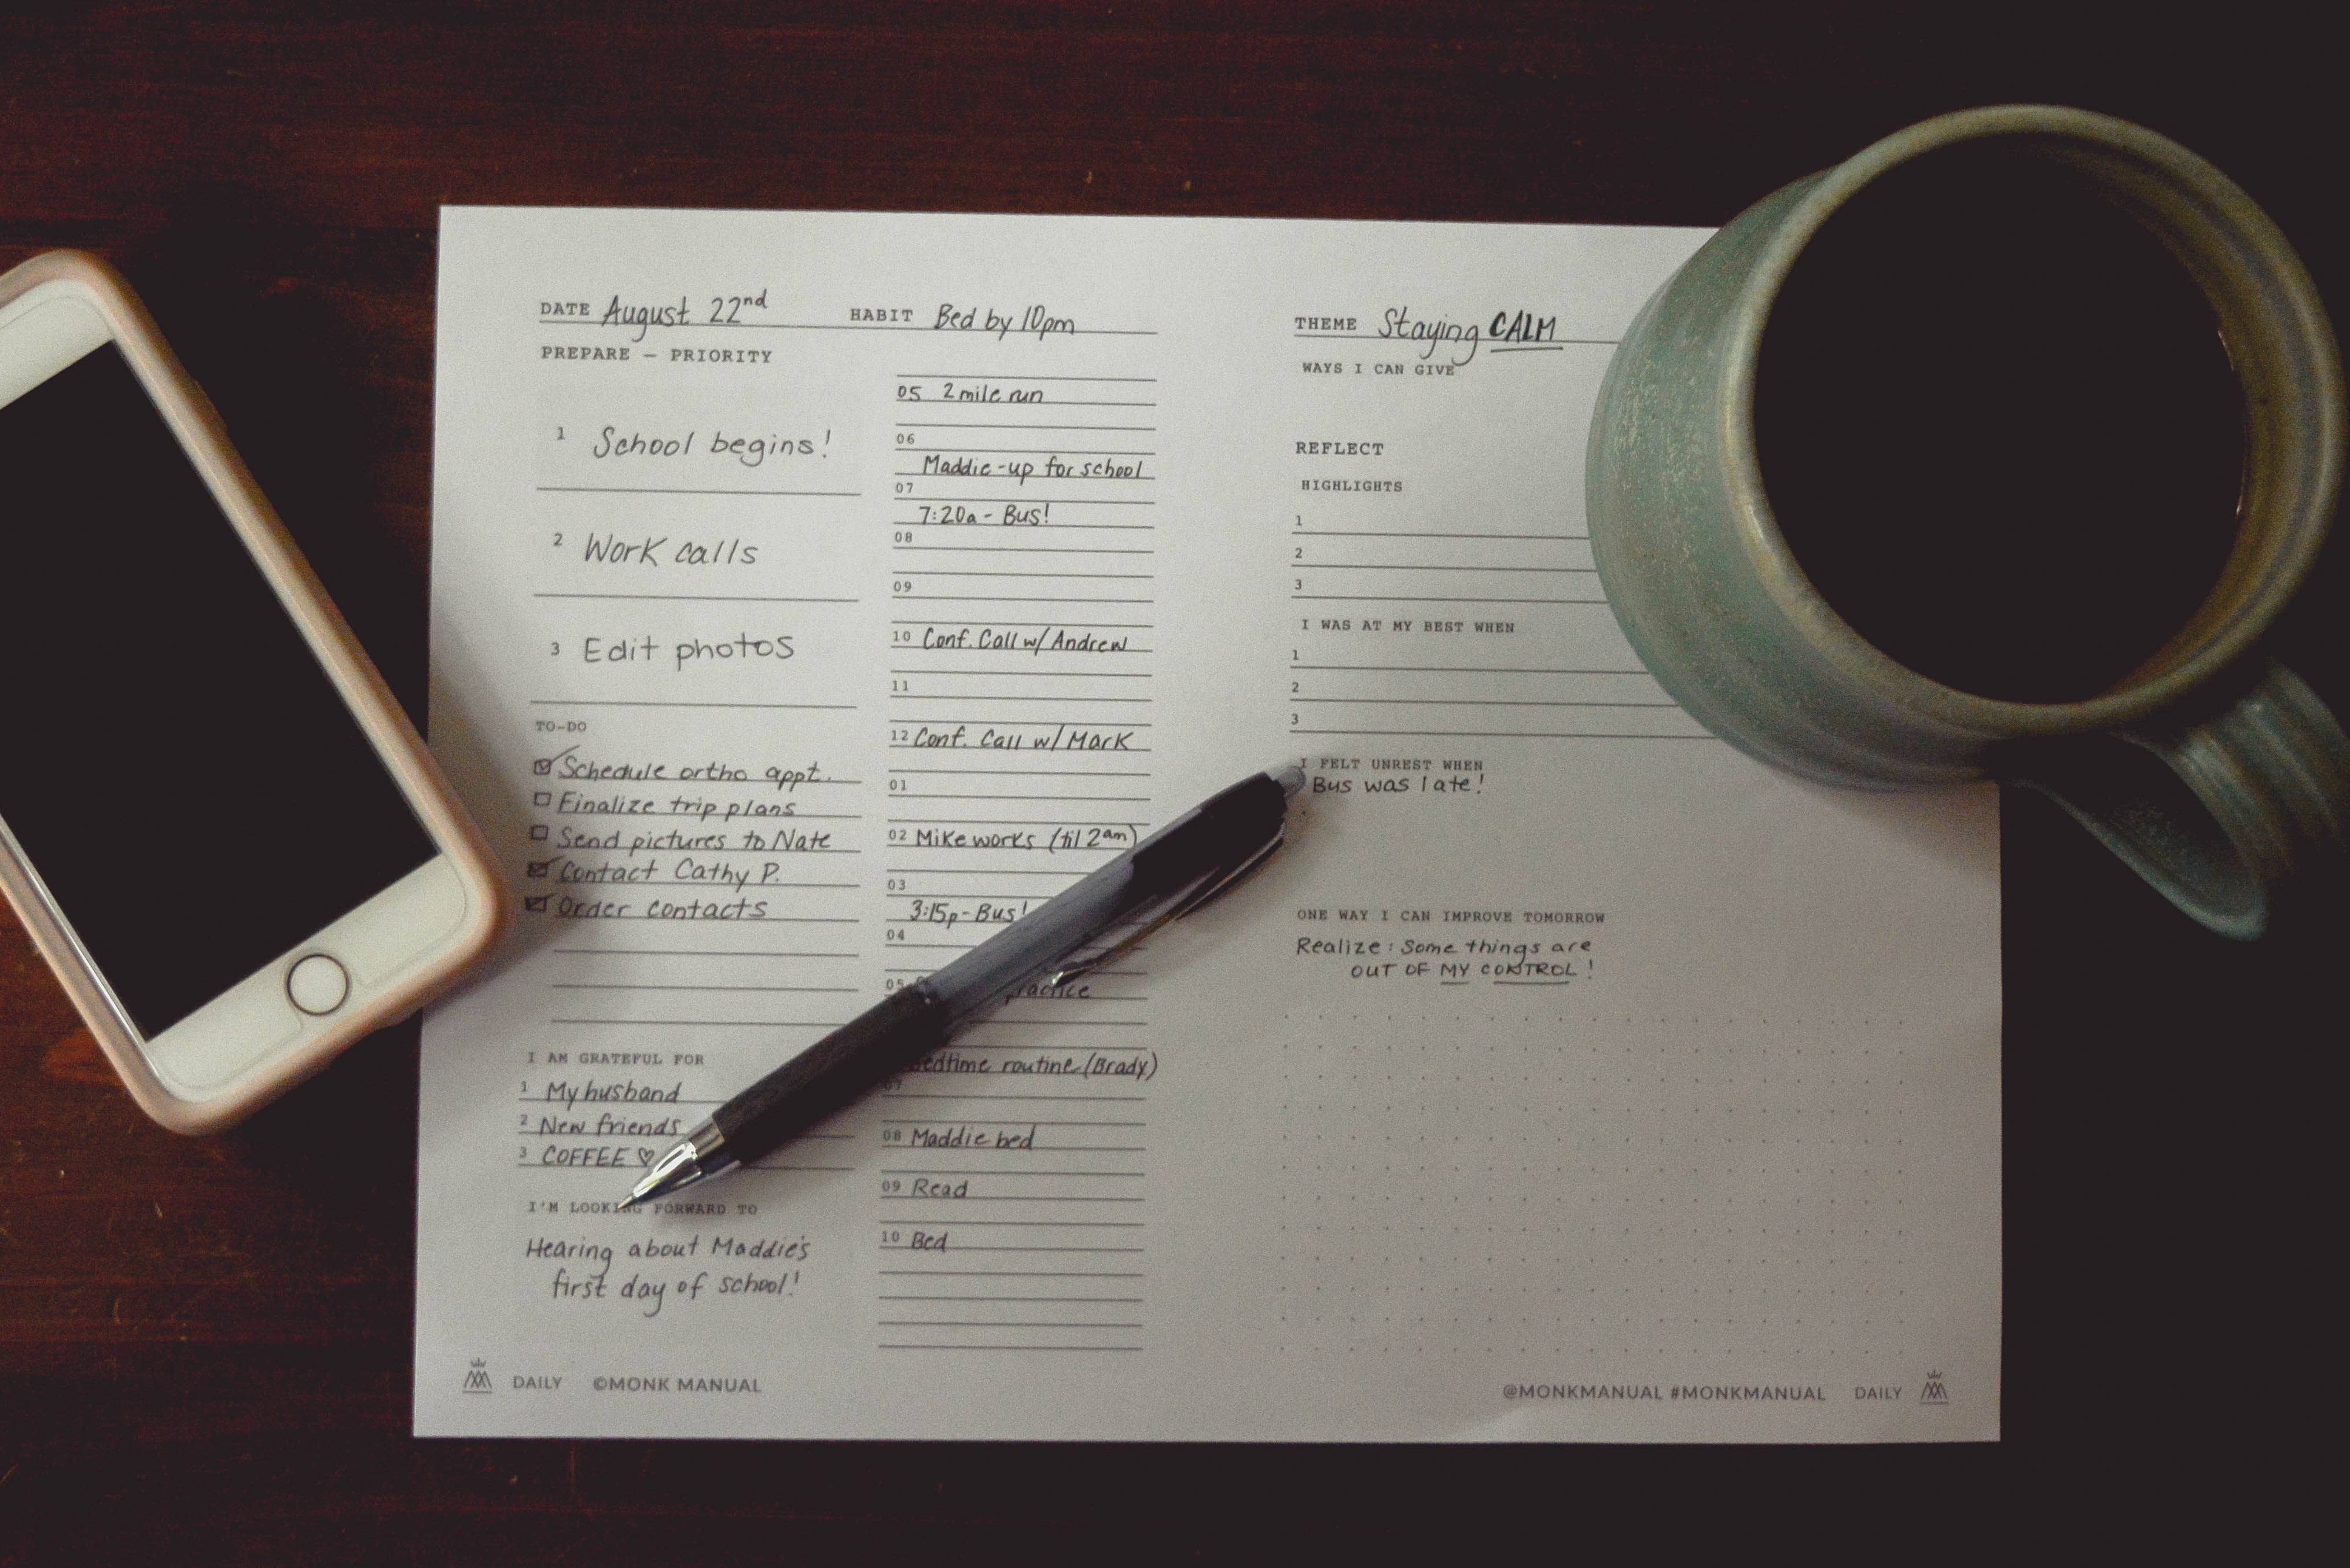 DATE August 22nd
HABIT Bed by 10pm
PREPARE — PRIORITY
1 School begins!
2 Work calls
3 Edit photos
TO-DO
Schedule ortho appt.
Finalize trip plans
Send pictures to Nate
Contact Cathy P.
Order contacts
I AM GRATEFUL FOR
1 My husband
2 New friends
3 COFFEE ♡
I'M LOOKING FORWARD TO
Hearing about Maddie's
first day of school!
05 2 mile run
06
Maddie-up for school
07
7:20a - Bus!
08
09
10 Conf. Call w/ Andrew
11
12 Conf. Call w/ Mark
01
02 Mike works (til 2am)
03
3:15p - Bus!
04
05
routine (Brady)
07
08 Maddie bed
09 Read
10 Bed
DAILY ©MONK MANUAL
THEME Staying CALM
WAYS I CAN GIVE
REFLECT
HIGHLIGHTS
1
2
3
I WAS AT MY BEST WHEN
1
2
3
I FELT UNREST WHEN
Bus was late!
ONE WAY I CAN IMPROVE TOMORROW
Realize: Some things are
OUT OF MY CONTROL!
@MONKMANUAL #MONKMANUAL DAILY